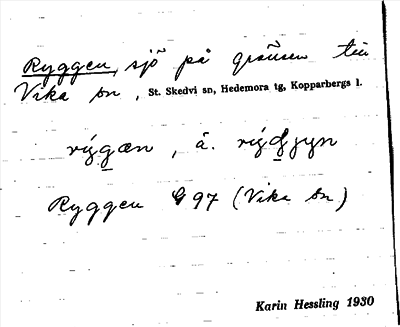 Ryggen, sjö på gränsen till
Vika sn, St. Skedvi sn, Hedemora tg, Kopparbergs l.
rýgæn, ä.
Ryggen G 97 (Vika sn)
Karin Hessling 1930